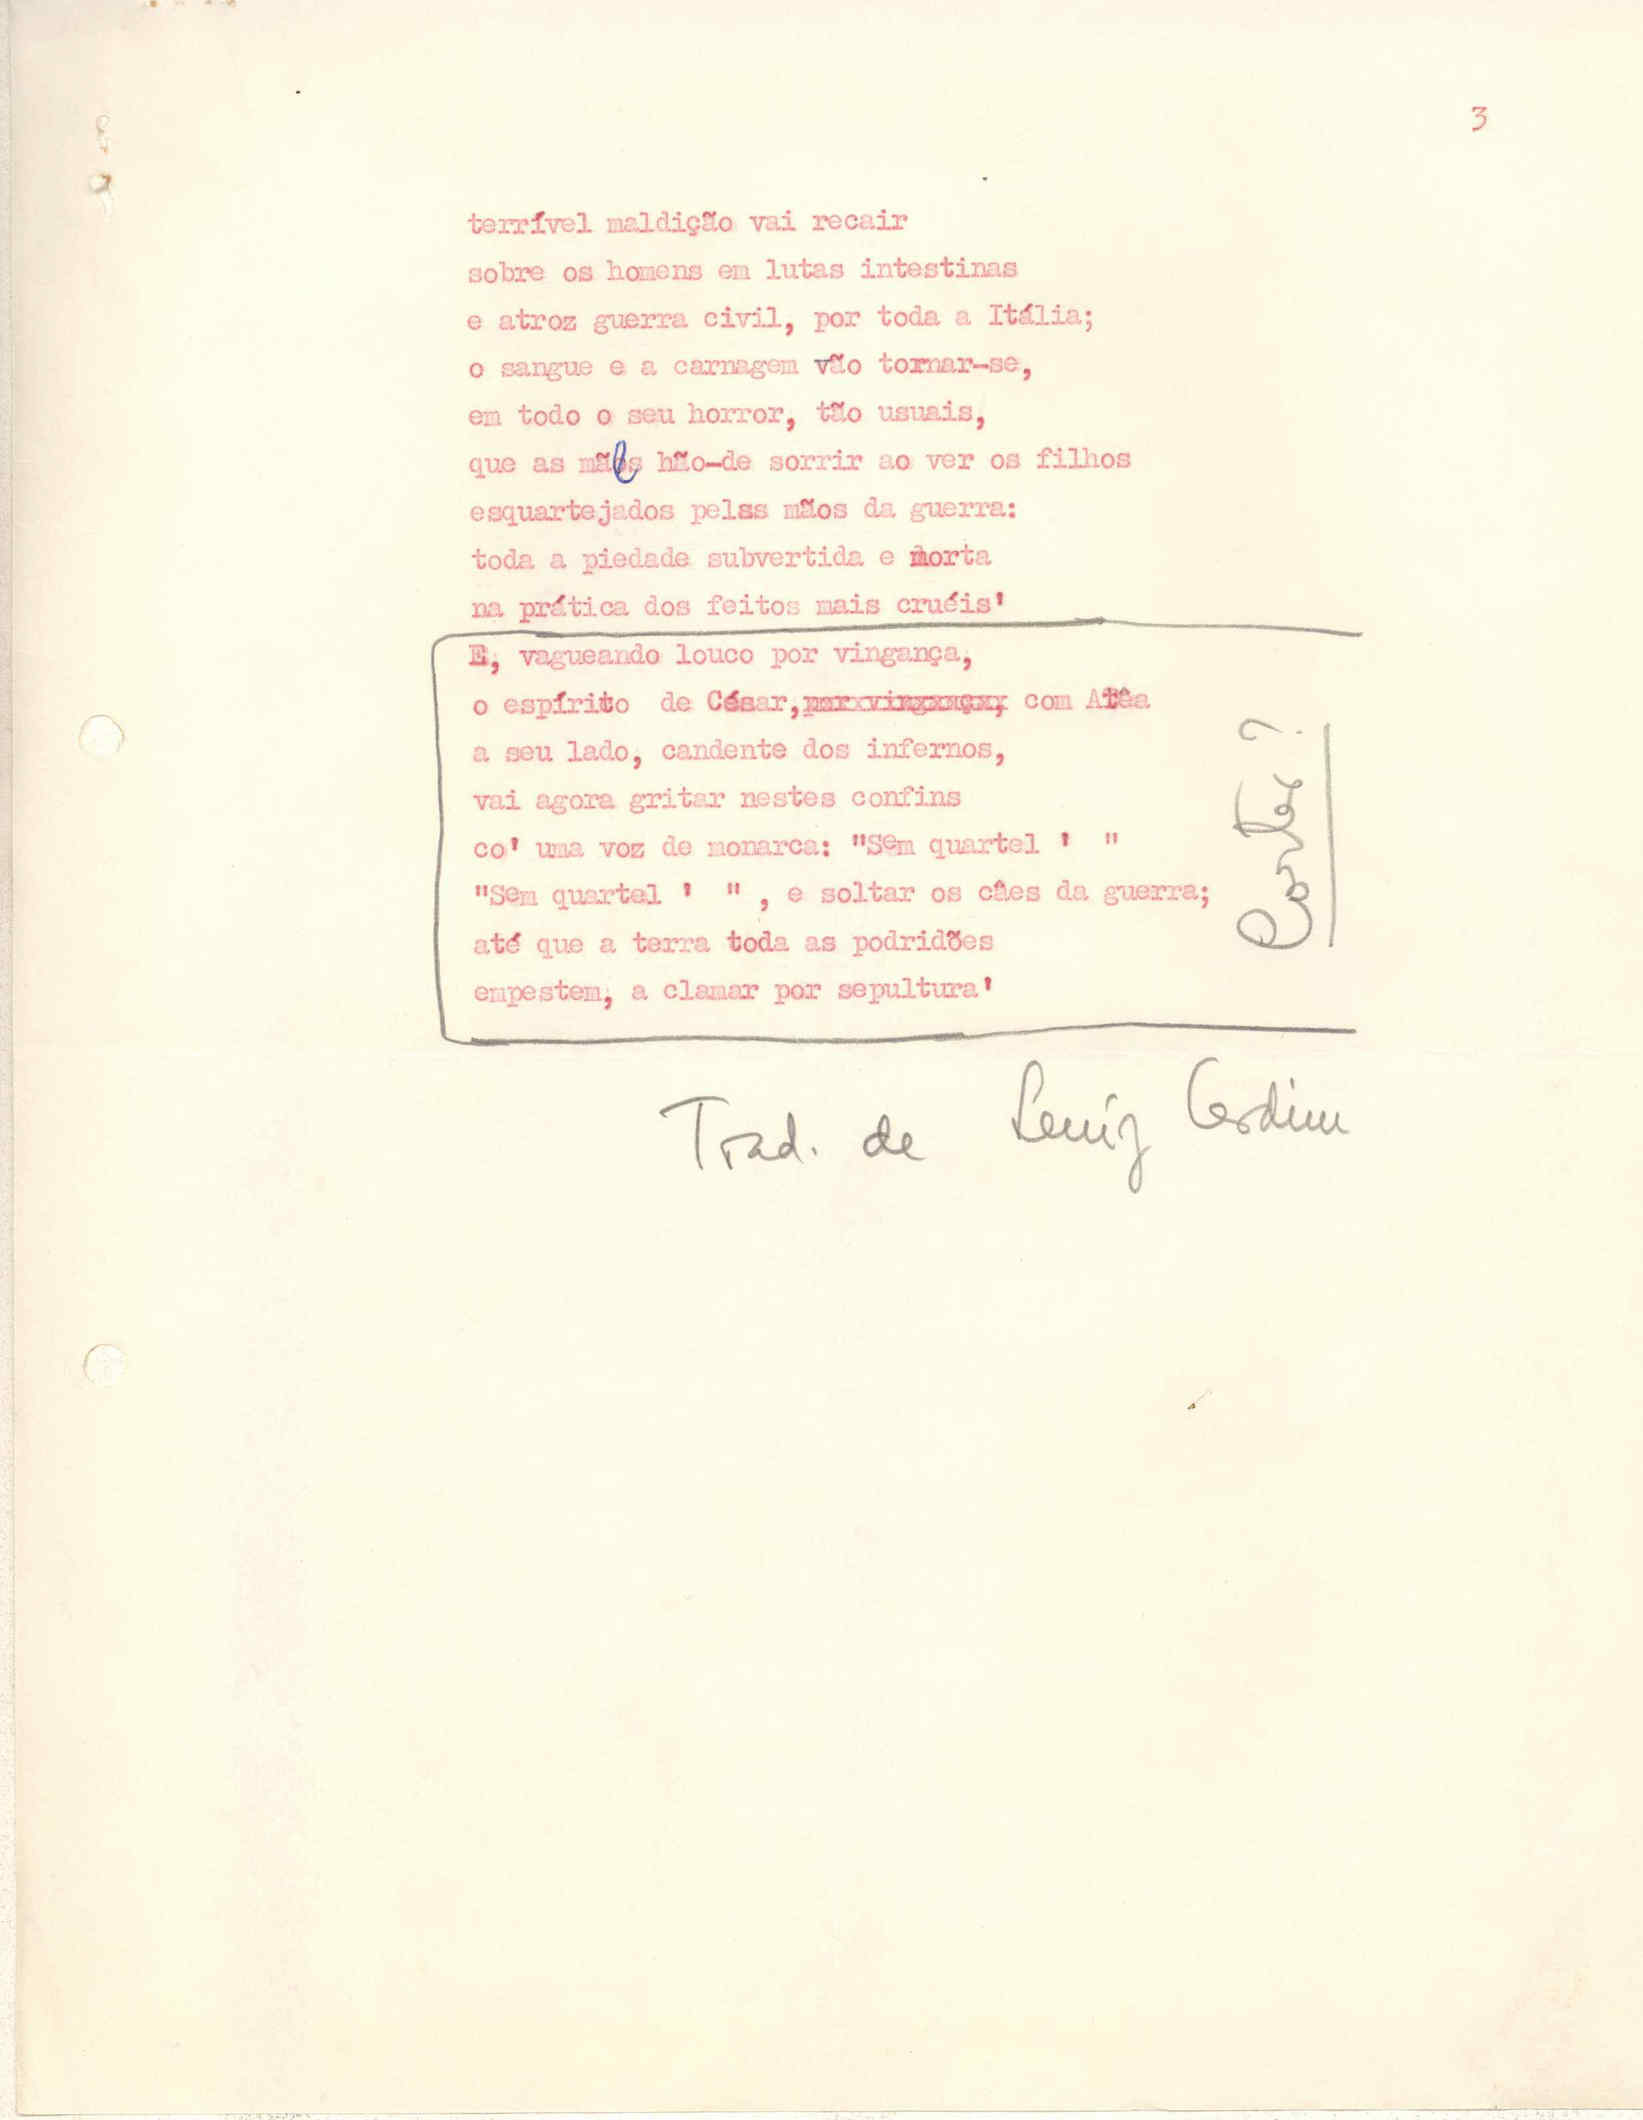 3
terrível maldição vai recair
sobre os homens em lutas intestinas
e atroz guerra civil, por toda a Itália;
o sangue e a carnagem vão tornar-se,
em todo o seu horror, tão usuais,
que as mães hão-de sorrir ao ver os filhos
esquartejados pelss mãos da guerra:
toda a piedade subvertida e morta
na prática dos feitos mais cruéis'
E, vagueando louco por vingança,
o espírito de César, por vingança, com Atêa
a seu lado, candente dos infernos,
vai agora gritar nestes confins
co' uma voz de monarca: "Sem quartel ' "
"Sem quartel ' " , e soltar os cães da guerra;
até que a terra toda as podridões
empestem, a clamar por sepultura'
Cortes?
Trad. de Luiz Cardim